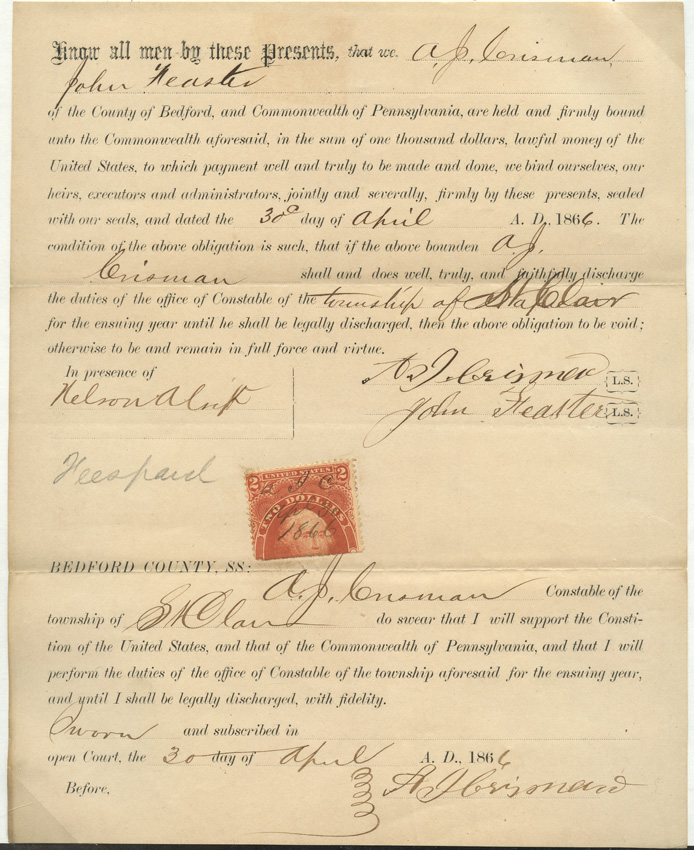 Know all men by these Presents, that we. A. J. Crisman,
John Feaster
of the County of Bedford, and Commonwealth of Pennsylvania, are held and firmly bound
unto the Commonwealth aforesaid, in the sum of one thousand dollars, lawful money of the
United States, to which payment well and truly to be made and done, we bind ourselves, our
heirs, executors and administrators, jointly and severally, firmly by these presents, sealed
with our seals, and dated the 30d day of April A. D., 1866. The
condition of the above obligation is such, that if the above bounden A. J.
Crisman shall and does well, truly, and faithfully discharge
the duties of the office of Constable of the township of St Clair
for the ensuing year until he shall be legally discharged, then the above obligation to be void;
otherwise to be and remain in full force and virtue.
In presence of
A J Crisman L.S.
Nelson
John Feaster L.S.
Fees paid
2 UNITED STATES 2
A J C
TWO DOLLARS
1866
BEDFORD COUNTY, SS:
A. J. Crisman Constable of the
township of St Clair do swear that I will support the Consti-
tion of the United States, and that of the Commonwealth of Pennsylvania, and that I will
perform the duties of the office of Constable of the township aforesaid for the ensuing year,
and until I shall be legally discharged, with fidelity.
Sworn and subscribed in
open Court, the 30 day of April A. D., 1866
Before, A J Crisman